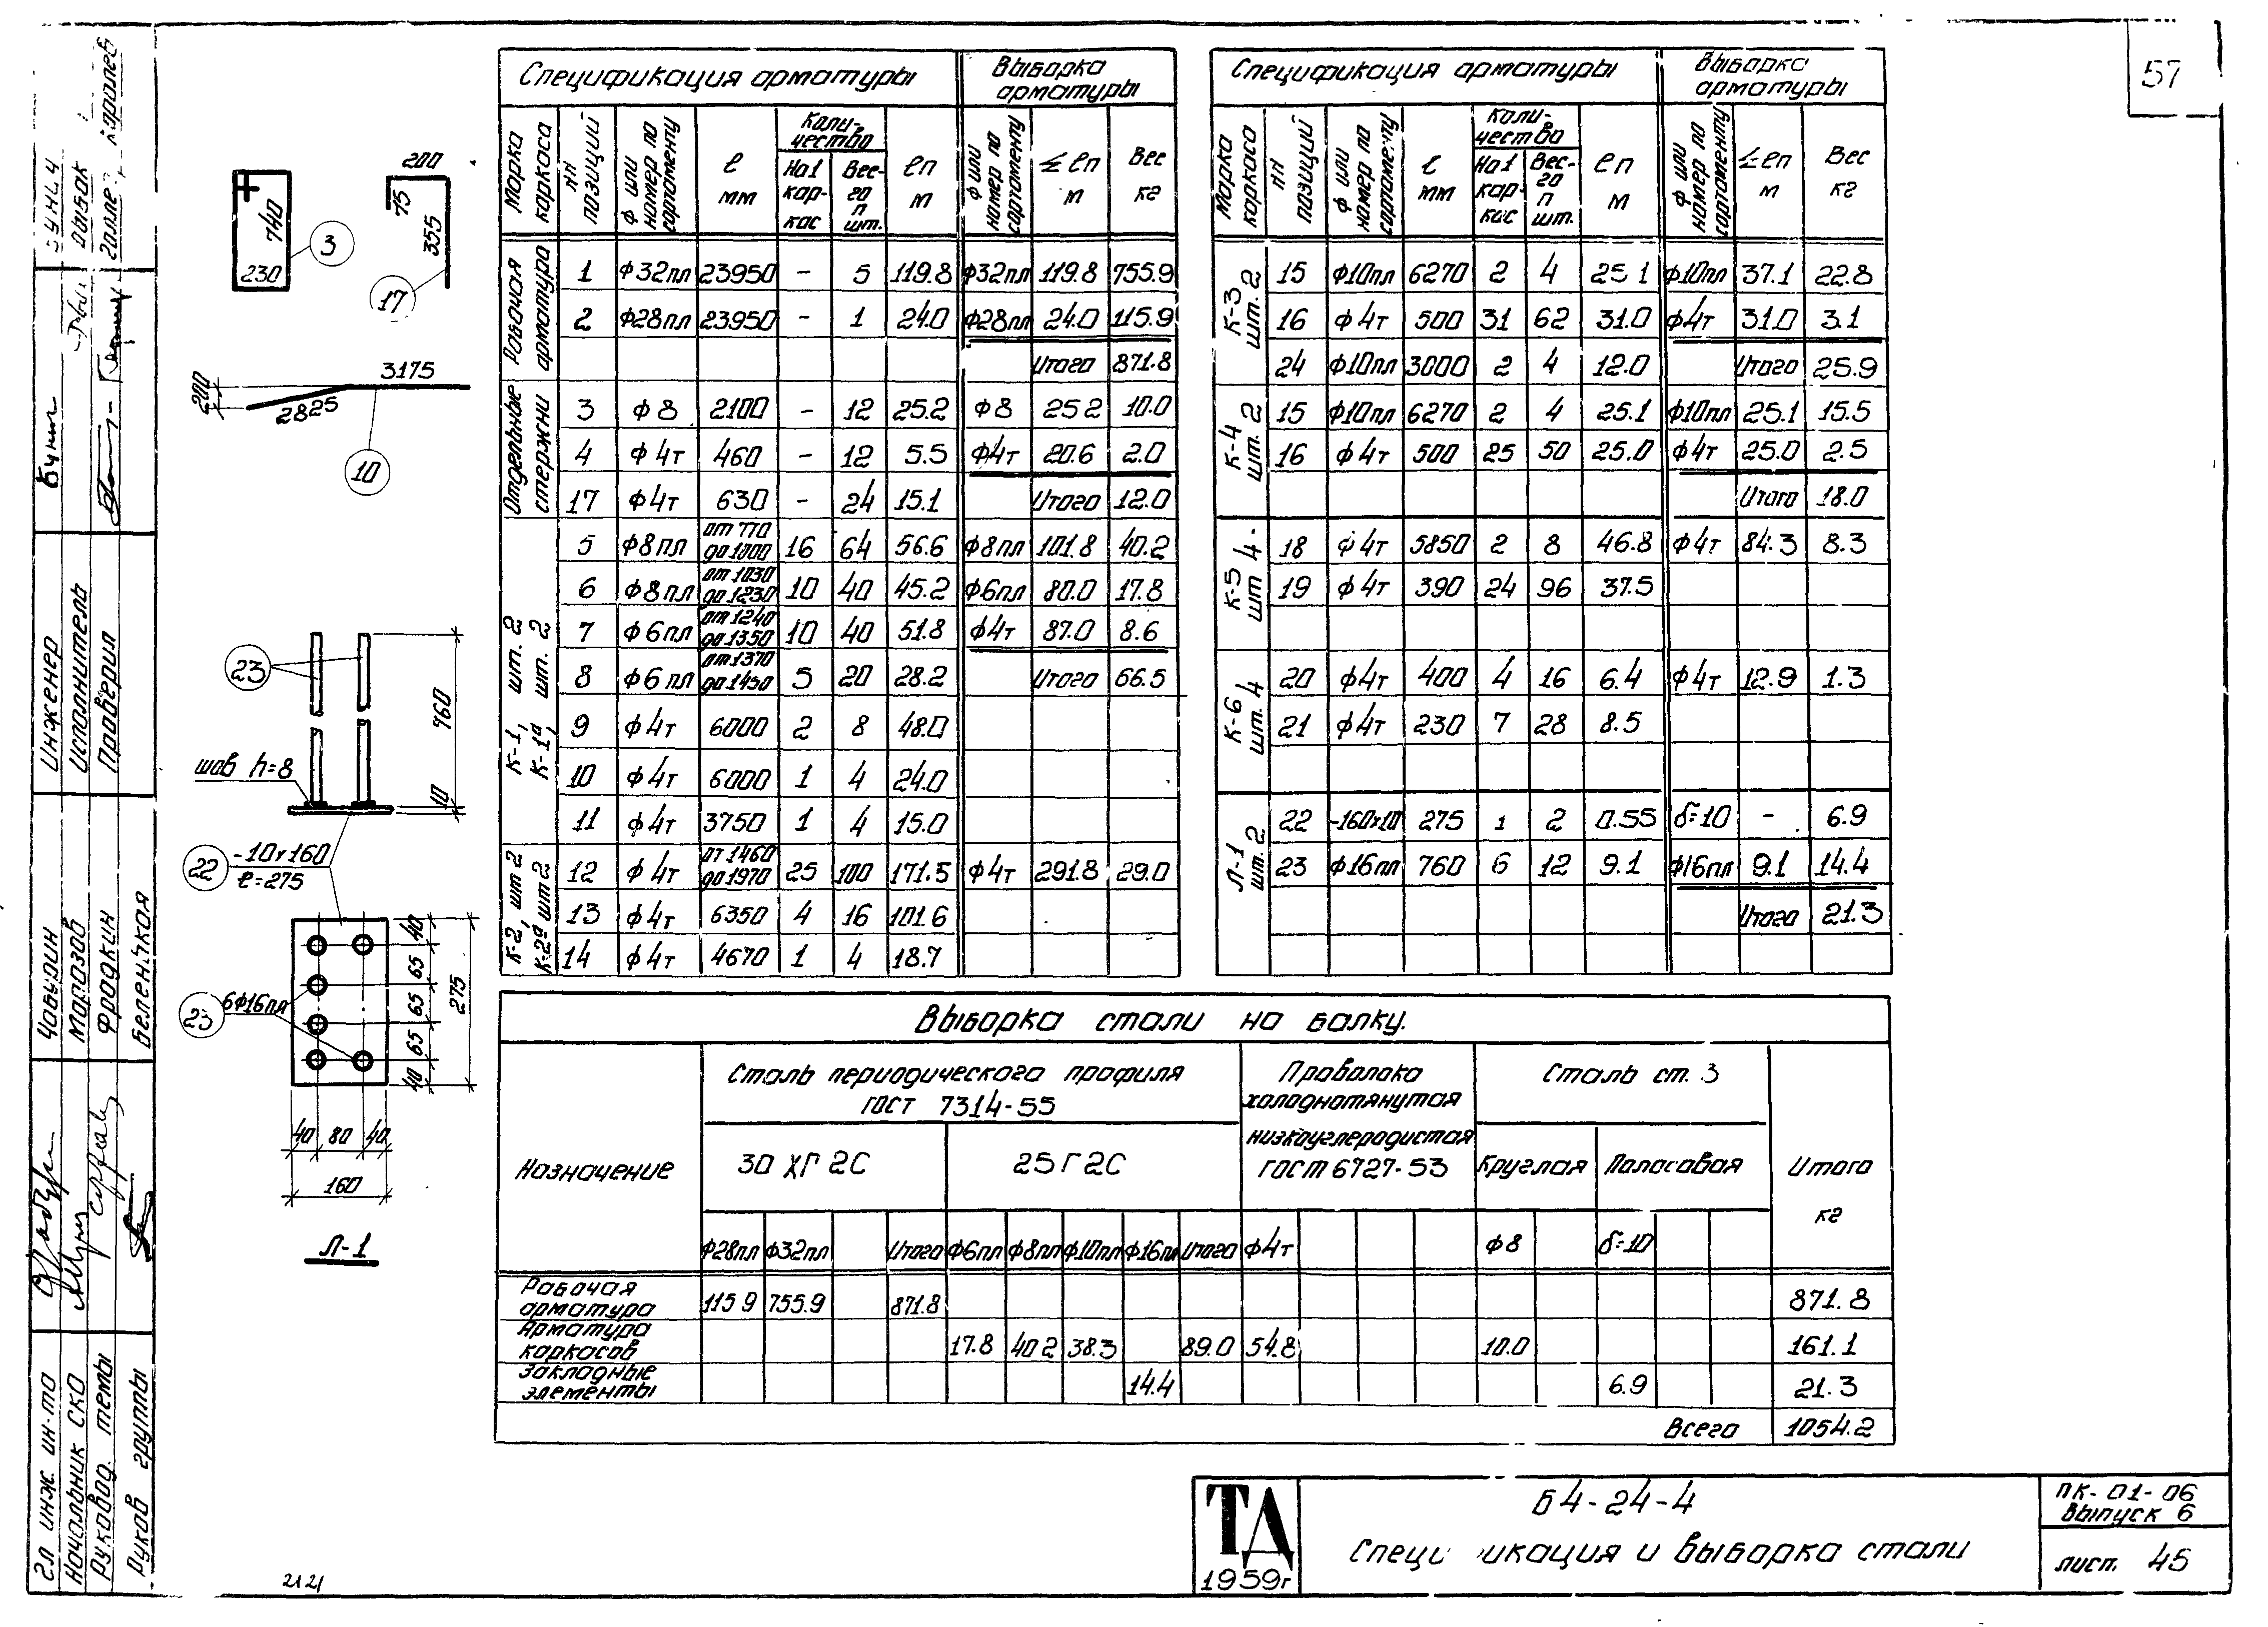 57
200
15
355
740
230
3
17
200
3175
2825
10
23
760
10
шов h=8
22
-10×160
ℓ=275
23
6Ф16пл
40
65
65
65
40
275
40 80 40
160
Л-1
Спецификация арматуры
Выборка арматуры
Марка каркаса | №№ позиций | Ф или номер по сортаменту | ℓ мм | Количество | На 1 каркас | Всего п шт. | ℓп м | Ф или номер по сортаменту | Σℓп м | Вес кг
Рабочая арматура
1 Ф32пл 23950 - 5 119.8 Ф32пл 119.8 755.9
2 Ф28пл 23950 - 1 24.0 Ф28пл 24.0 115.9
Итого 871.8
Отдельные стержни
3 Ф8 2100 - 12 25.2 Ф8 25 2 10.0
4 Ф4т 460 - 12 5.5 Ф4т 20.6 2.0
17 Ф4т 630 - 24 15.1 Итого 12.0
К-1, шт. 2
К-1а, шт. 2
5 Ф8пл от 770 до 1000 16 64 56.6 Ф8пл 101.8 40.2
6 Ф8пл от 1030 до 1230 10 40 45.2 Ф6пл 80.0 17.8
7 Ф6пл от 1240 до 1350 10 40 51.8 Ф4т 87.0 8.6
8 Ф6пл от 1370 до 1450 5 20 28.2 Итого 66.5
9 Ф4т 6000 2 8 48.0
10 Ф4т 6000 1 4 24.0
11 Ф4т 3750 1 4 15.0
К-2, шт 2
К-2а шт 2
12 Ф4т от 1460 до 1970 25 100 171.5 Ф4т 291.8 29.0
13 Ф4т 6350 4 16 101.6
14 Ф4т 4670 1 4 18.7
Спецификация арматуры
Выборка арматуры
Марка каркаса | №№ позиций | Ф или номер по сортаменту | ℓ мм | Количество | На 1 каркас | Всего п шт. | ℓп м | Ф или номер по сортаменту | Σℓп м | Вес кг
К-3 шт. 2
15 Ф10пл 6270 2 4 25 1 Ф10пл 37.1 22.8
16 Ф4т 500 31 62 31.0 Ф4т 31.0 3.1
24 Ф10пл 3000 2 4 12.0 Итого 25.9
К-4 шт. 2
15 Ф10пл 6270 2 4 25.1 Ф10пл 25.1 15.5
16 Ф4т 500 25 50 25.0 Ф4т 25.0 2.5
Итого 18.0
К-5 шт 4
18 Ф4т 5850 2 8 46.8 Ф4т 84.3 8.3
19 Ф4т 390 24 96 37.5
К-6 шт. 4
20 Ф4т 400 4 16 6.4 Ф4т 12.9 1.3
21 Ф4т 230 7 28 8.5
Л-1 шт. 2
22 -160×10 275 1 2 0.55 δ=10 - 6.9
23 Ф16пл 760 6 12 9.1 Ф16пл 9.1 14.4
Итого 21.3
Выборка стали на балку.
Назначение
Сталь периодического профиля
ГОСТ 7314-55
30 ХГ 2С
25 Г 2С
Проволока
холоднотянутая
низкоуглеродистая
ГОСТ 6727-53
Сталь ст. 3
Круглая
Полосовая
Итого
кг
Ф28пл Ф32пл Итого Ф6пл Ф8пл Ф10пл Ф16пл Итого Ф4т Ф8 δ=10
Рабочая арматура 115 9 755.9 871.8 871.8
Арматура каркасов 17.8 40 2 38.3 89.0 54.8 10.0 161.1
Закладные элементы 14.4 6.9 21.3
Всего 1054.2
ТА
1959г
Б4-24-4
Специ икация и выборка стали
ПК-01-06
Выпуск 6
лист. 45
2121
Гл инж ин-та
Начальник СКО
Руковод. темы
Руков группы
Чабурин
Морозов
Фрадкин
Инженер
Исполнитель
Проверил